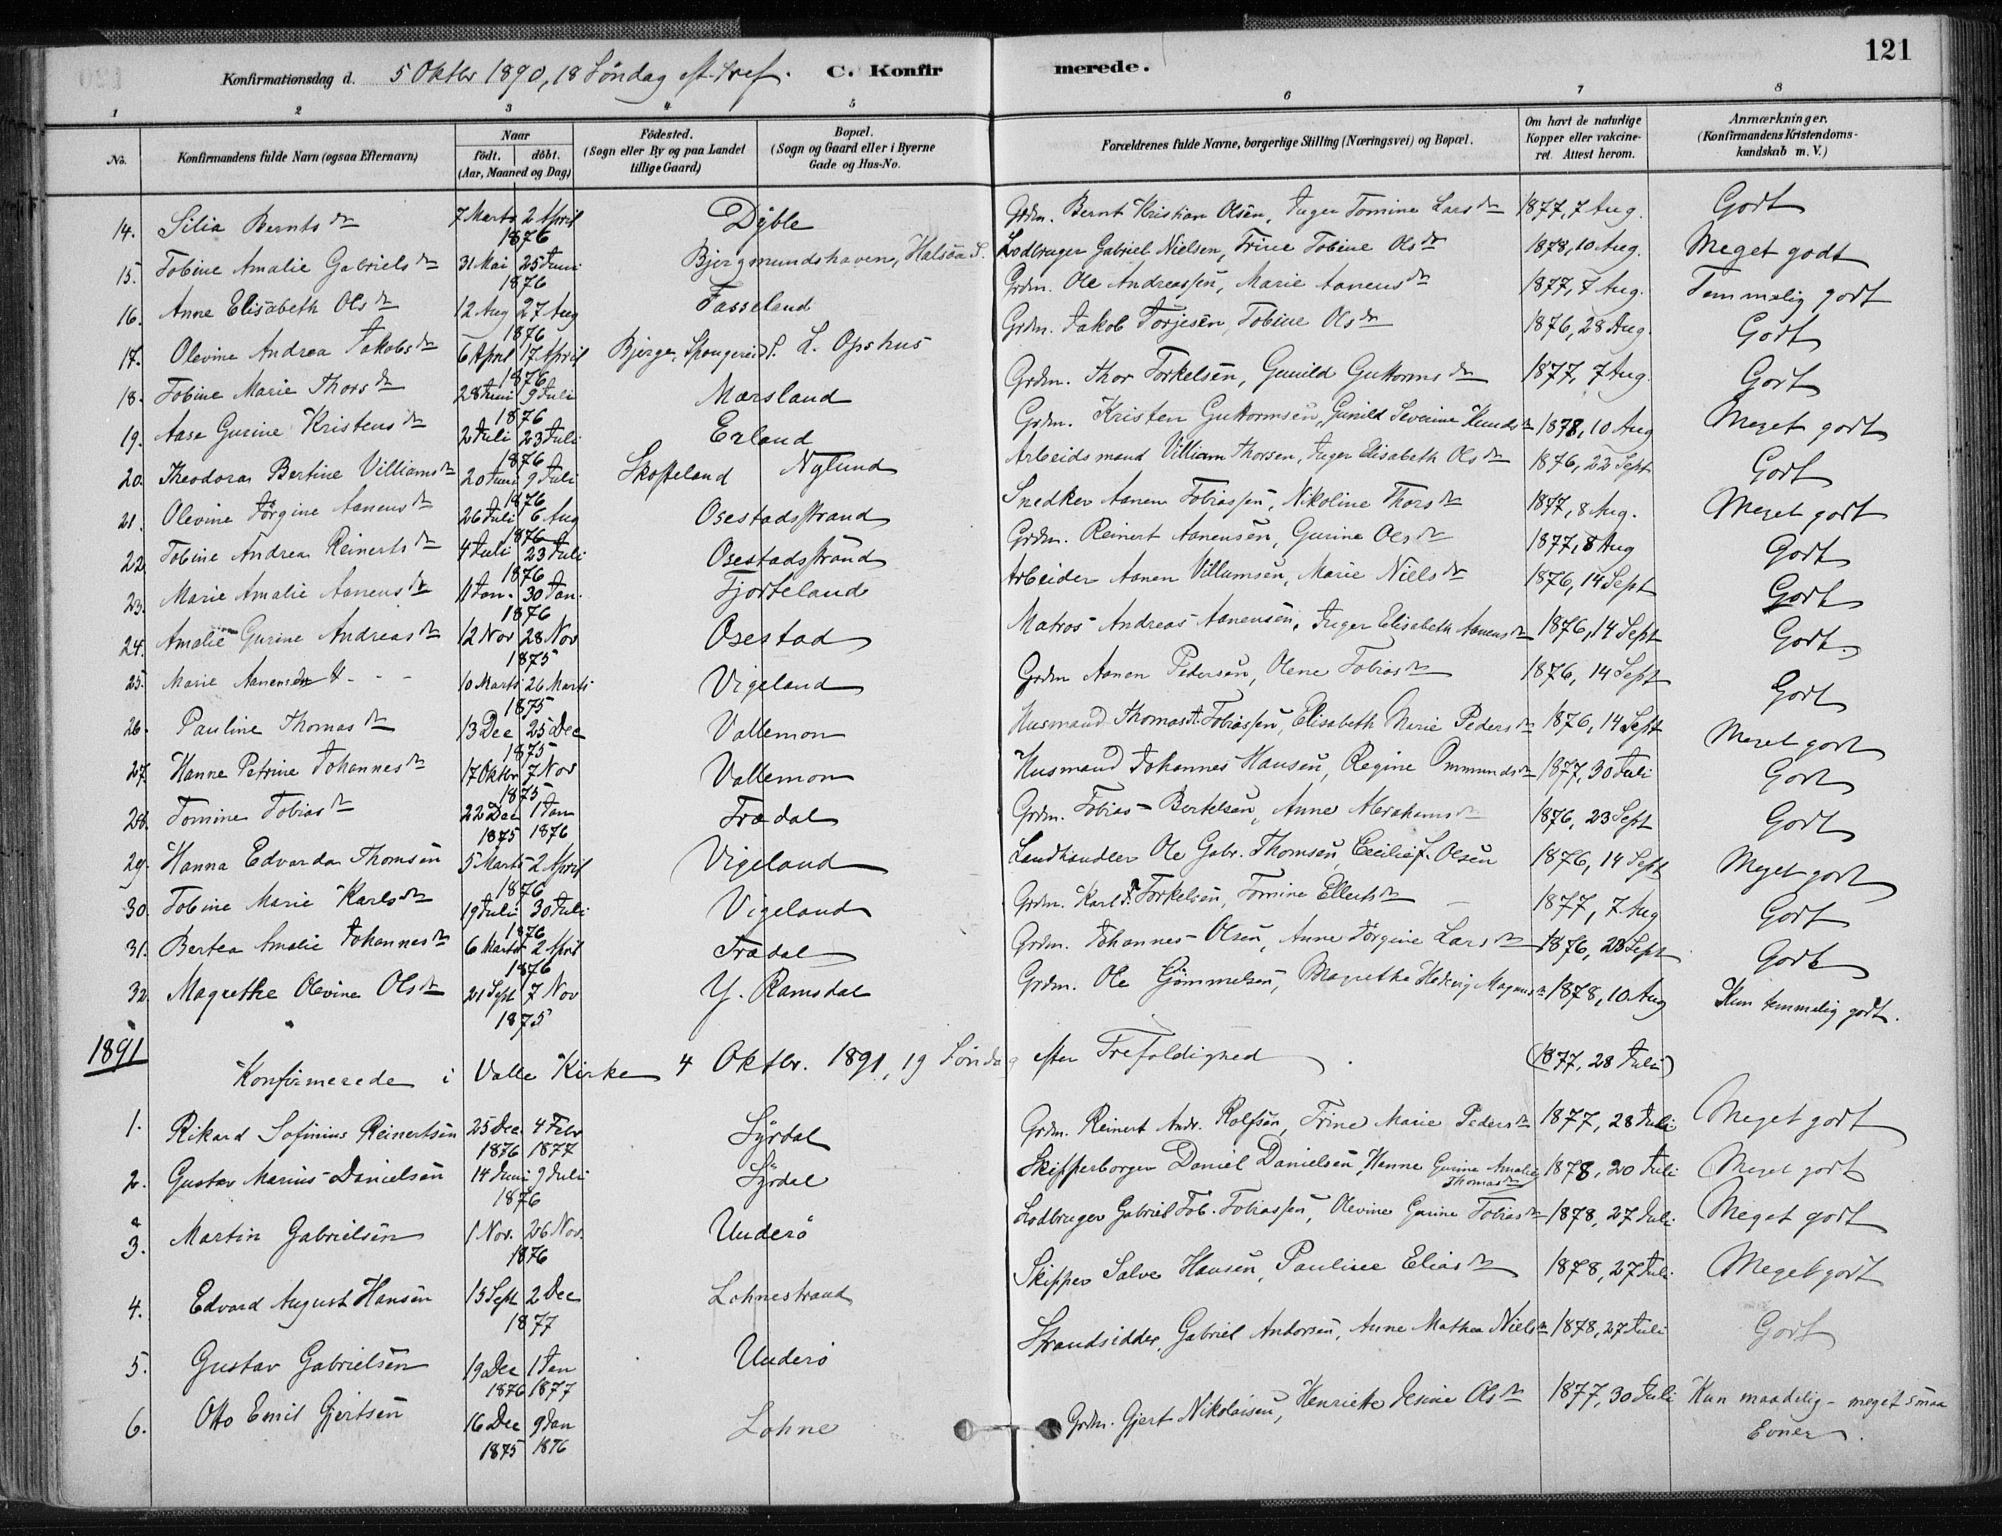 121
Konfirmationsdag d. 5 Oktbr 1890, 18 Søndag eft. Tref. C. Konfirmerede.
1 2 3 4 5 6 7 8
No. Konfirmandens fulde Navn (ogsaa Efternavn) Naar født. døbt. (Aar, Maaned og Dag) Fødested. (Sogn eller By og paa Landet tillige Gaard) Bopæl. (Sogn og Gaard eller i Byerne Gade og Hus-No. Forældrenes fulde Navne, borgerlige Stilling (Næringsvei) og Bopæl. Om havt de naturlige Kopper eller vakcineret. Attest herom. Anmærkninger. (Konfirmandens Kristendomskundskab m. V.)
14. Silia Bernts dr 7 Marts 2 April 1876 Dyble Grdm. Bernt Kristian Olsen, Inger Tomine Lars dr 1877, 7 Aug. Godt
15. Tobine Amalie Gabriels dr 31 Mai 25 Juni 1876 Bjergmundshaven, Halsaa S. Lodbruger Gabriel Nielsen, Trine Tobine Ols dr 1878, 10 Aug. Meget godt
16. Anne Elisabeth Ols dr 12 Aug 27 Aug 1876 Fasseland Grdm. Ole Andreassen, Marie Aanens dr 1877, 7 Aug. Temmelig godt
17. Olevine Andrea Jakobs dr 6 April 17 April 1876 Bjerge, Spangereid S. L. Opshus Grdm. Jakob Torjesen, Tobine Ols dr 1876, 28 Aug. Godt
18. Tobine Marie Thors dr 28 Juni 9 Juli 1876 Mærsland Grdm. Thor Torkelsen, Gunild Guttorms dr 1877, 7 Aug. Godt
19. Aase Gurine Kristens dr 2 Juli 23 Juli 1876 Erland Grdm. Kristen Guttormsen, Gunild Severine Knuds dr 1878, 10 Aug Meget godt
20. Theodora Bertine Villiams dr 20 Juni 9 Juli 1876 Skofteland Nylund Arbeidsmand Villiam Thorsen, Inger Elisabeth Ols dr 1876, 22 Sept Godt
21. Olevine Jørgine Aanens dr 26 Juli 6 Aug 1876 Osestadsstrand Snedker Aanen Tobiassen, Nikoline Thors dr 1877, 8 Aug. Meget godt
22. Tobine Andrea Reinerts dr 4 Juli 23 Juli 1876 Osestadsstrand Grdm. Reinert Aanensen, Gurine Ols dr 1877, 8 Aug Godt
23. Marie Amalie Aanens dr 11 Jan. 30 Jan. 1876 Fjorteland Arbeider Aanen Villumsen, Marie Niels dr 1876, 14 Sept Godt
24. Amalie Gurine Andreas dr 12 Nov 28 Nov 1875 Osestad Matros Andreas Aanensen, Inger Elisabeth Aanens dr 1876, 14 Sept Godt.
25. Marie Aanensdr 10 Marts 26 Marts 1875 Vigeland Grdm Aanen Pedersen, Olene Tobias dr 1876, 14 Sept Godt
26. Pauline Thomas dr 13 Dec 25 Dec 1875 Vallemon Husmand Thomas A. Tobiassen, Elisabeth Marie Peders dr 1876, 14 Sept Meget godt
27. Hanne Petrine Johannes dr 17 Oktbr 7 Nov 1875 Vallemon Husmand Johannes Hansen, Regine Ommunds dr 1877, 30 Juli Godt
28. Tomine Tobias dr 22 Dec 1 Jan 1875 1876 Trædal Grdm. Tobias Bertelsen, Anne Abrahams dr 1876, 23 Sept Godt
29. Hanna Edvarda Thomsen 5 Marts 2 April 1876 Vigeland Landhandler Ole Gabr. Thomsen, Cecilie f. Olsen 1876, 14 Sept Meget godt
30. Tobine Marie Karls dr 19 Juli 30 Juli 1876 Vigeland Grdm. Karl T. Torkelsen, Tomine Ellerts dr 1877, 7 Aug Godt
31. Bertea Amalie Johannes dr 6 Marts 2 April 1876 Trædal Grdm. Johannes Olsen, Anne Jørgine Lars dr 1876, 23 Sept Godt
32. Magrethe Olevine Ols dr 21 Sept 7 Nov 1875 Y. Ramsdal Grdm. Ole Gjømmelsen, Magrethe Hedevig Magnus dr 1878, 10 Aug Kun temmelig godt.
1891
Konfirmerede i Valle Kirke 4 Oktbr. 1891, 19 Søndag efter Trefoldighed (1877, 28 Juli)
1. Rikard Sofinius Reinertsen 25 Dec. 4 Febr 1876 1877 Syrdal Grdm. Reinert Andr. Rolfsen, Trine Marie Peders dr 1877, 28 Juli Meget godt
2. Gustav Marius Danielsen 14 Juni 9 Juli 1876 Syrdal Skipperborger Daniel Danielsen, Hanne Gurine Amalie Thomas dr 1878, 20 Juli Meget godt
3. Martin Gabrielsen 1 Nov. 26 Nov. 1876 Underø Lodbruger Gabriel Tob. Tobiassen, Olevine Gurine Tobias dr 1878, 27 Juli Meget godt
4. Edvard August Hansen 15 Sept 2 Dec 1877 Lohnestrand Skipper Salve Hansen, Pauline Elias dr 1878, 27 Juli Meget godt
5. Gustav Gabrielsen 19 Dec 1 Jan 1876 1877 Underø Strandsidder. Gabriel Andersen, Anne Mathea Niels dr 1878, 27 Juli Godt
6. Otto Emil Gjertsen 16 Dec 9 Jan 1875 1876 Lohne Grdm. Gjert Nikolaisen, Henriette Jesine Ols dr 1877, 30 Juli Kun maadelig - meget smaa Evner.